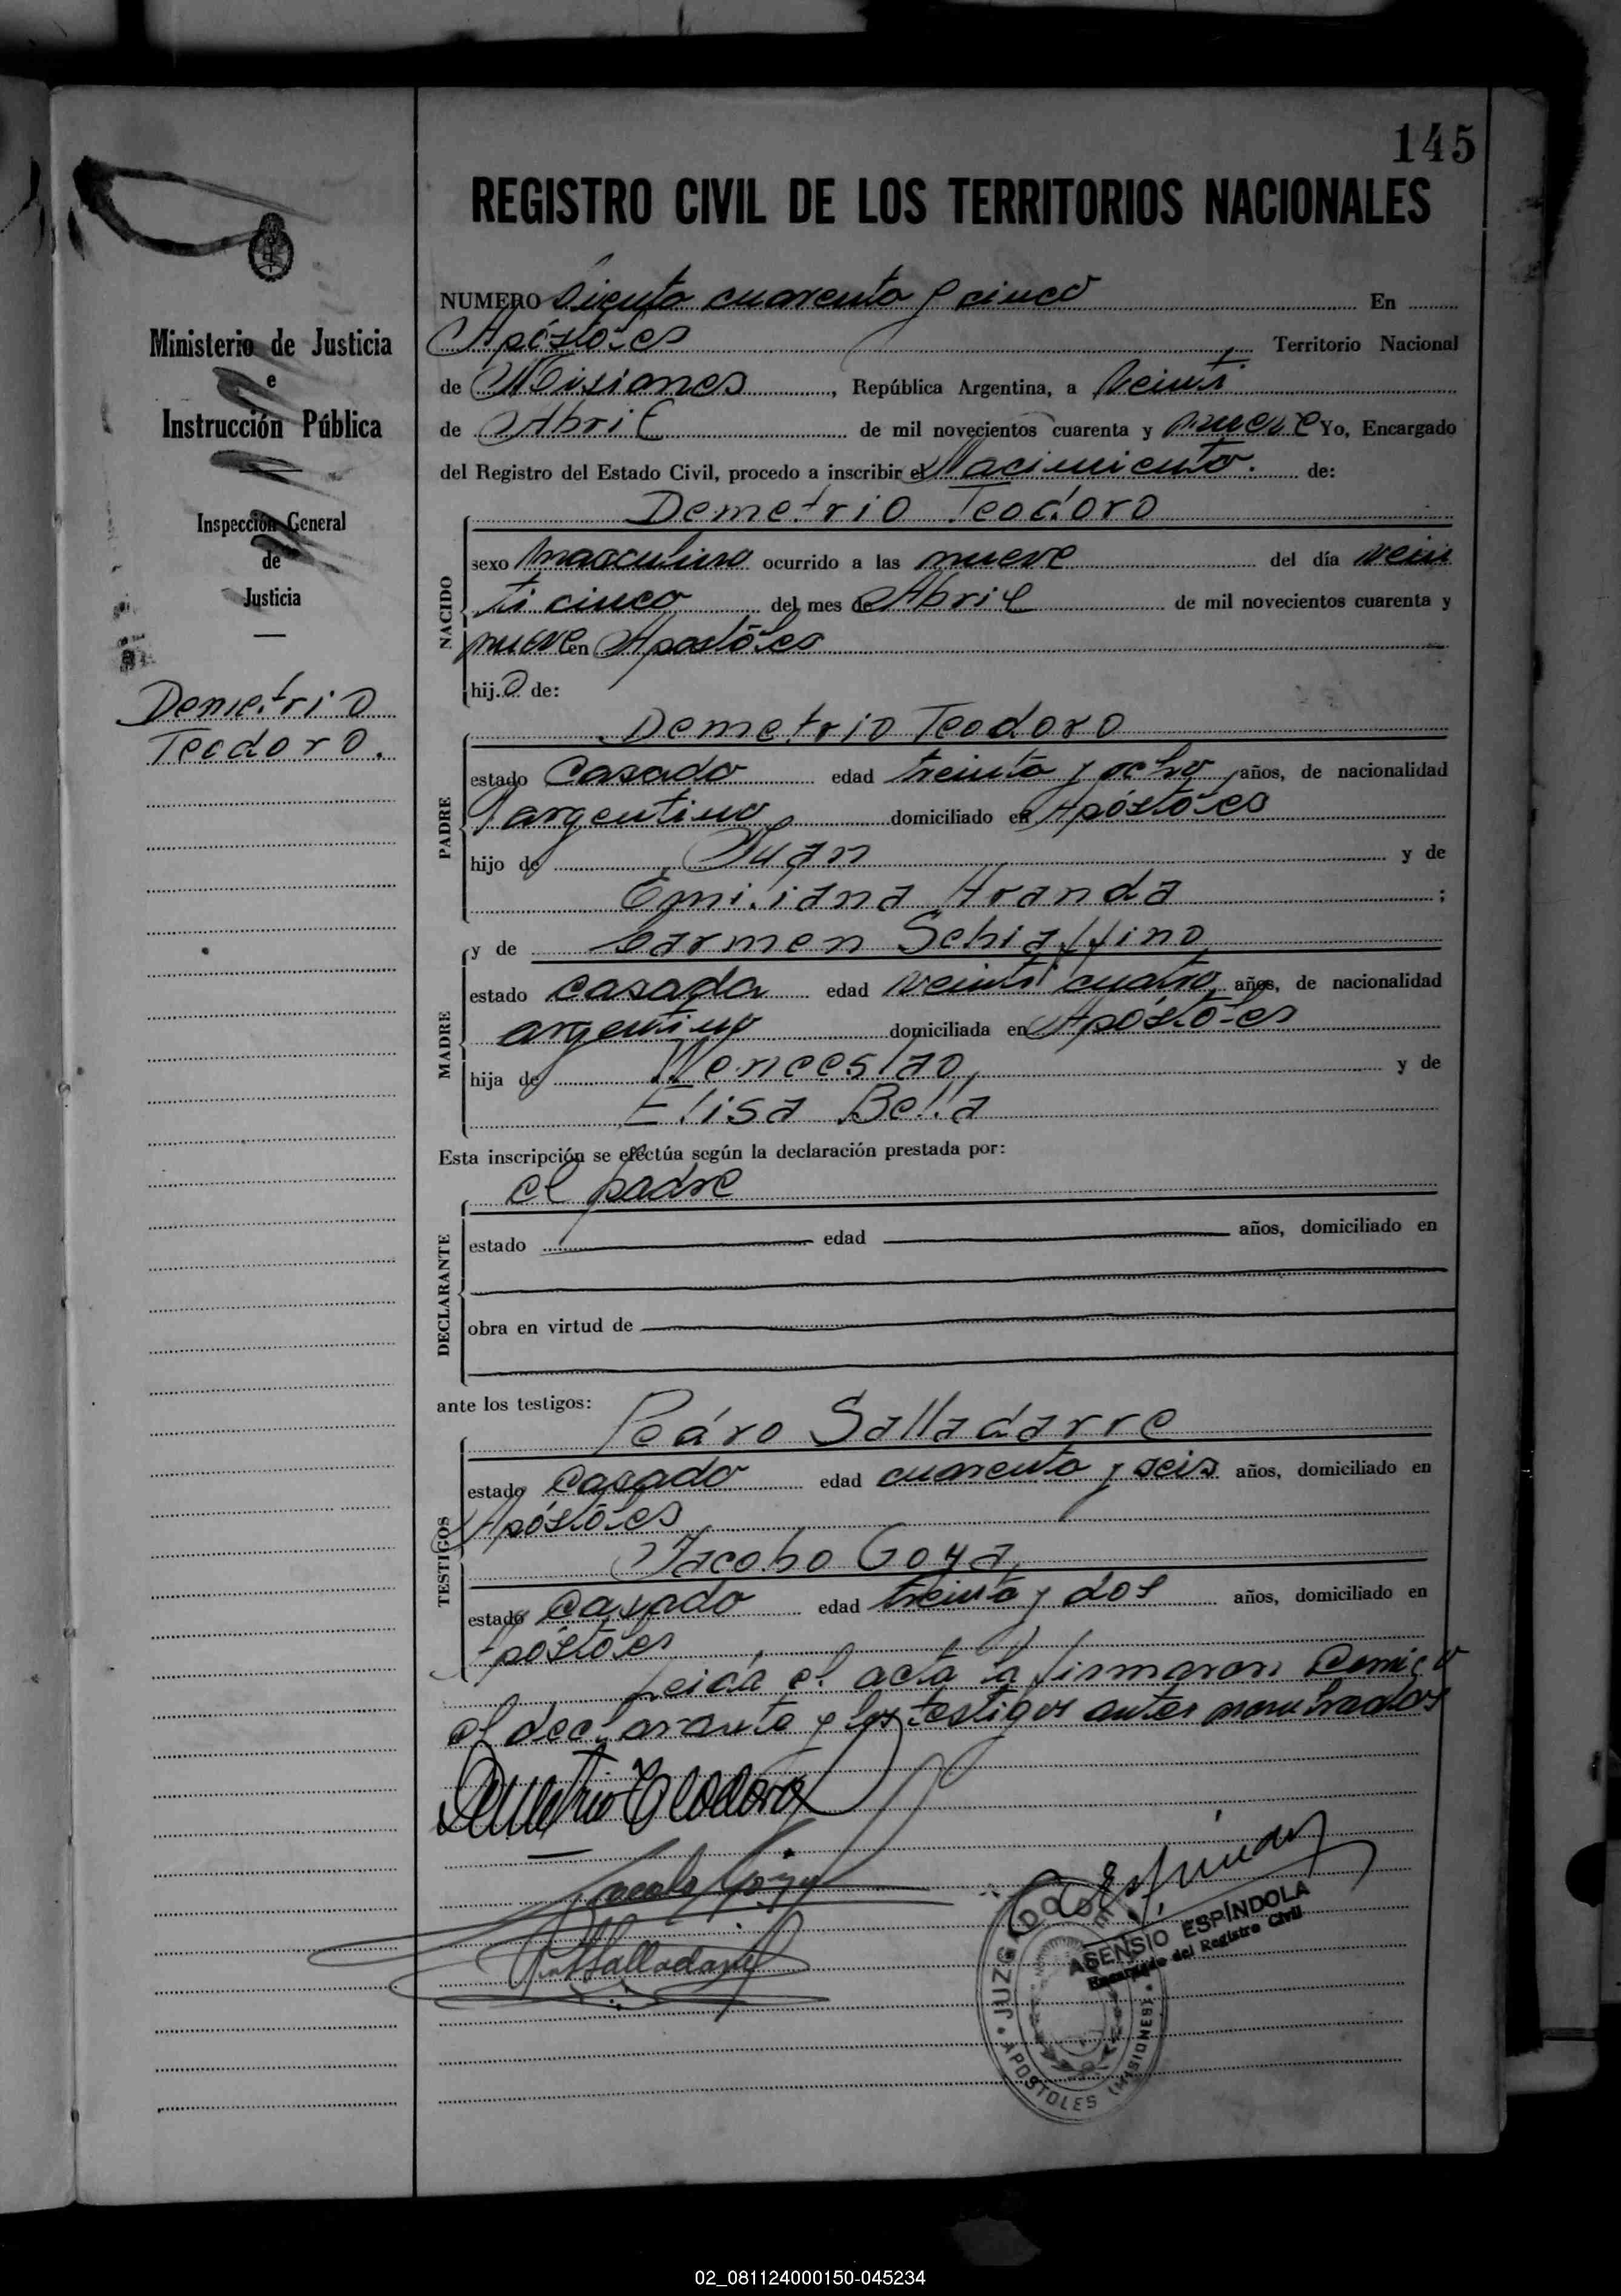 145
REGISTRO CIVIL DE LOS TERRITORIOS NACIONALES
Ministerio de Justicia
e
Instrucción Pública
Inspección General
de
Justicia
Demetrio
Teodoro.
NUMERO Siento cuarenta y cinco En
Apóstoles Territorio Nacional
de Misiones, República Argentina, a
de Abril de mil novecientos cuarenta y nueve Yo, Encargado
del Registro del Estado Civil, procedo a inscribir el Nacimiento. de:
Demetrio Teodoro
NACIDO
sexo masculino ocurrido a las nueve del día vein
ti cinco del mes de Abril de mil novecientos cuarenta y
nueve en Apostóles
hijo de:
Demetrio Teodoro
PADRE
estado Casado edad treinta y ocho años, de nacionalidad
argentino domiciliado en Apóstoles
hijo de Juan y de
Emiliana Aranda ;
y de Carmen Schiaffino
MADRE
estado casada edad veinti cuatro años, de nacionalidad
argentina domiciliada en Apóstoles
hija de Wenceslao y de
Elisa Bella
Esta inscripción se efectúa según la declaración prestada por:
el padre
DECLARANTE
estado edad años, domiciliado en
obra en virtud de
ante los testigos:
Pedro Salladarre
TESTIGOS
estado Casado edad cuarenta y seis años, domiciliado en
Apóstoles
Jacobo Goya
estado Casado edad treinta y dos años, domiciliado en
Apóstoles
Leida el acta la firmaron Conmigo
el declarante y los testigos antes nombrados
Demetrio Teodoro
Jacobo Goya
Salladarre
ASENSIO ESPÍNDOLA
Encargado del Registro Civil
JUZGADO DE
APOSTOLES (MISIONES)
02_081124000150-045234